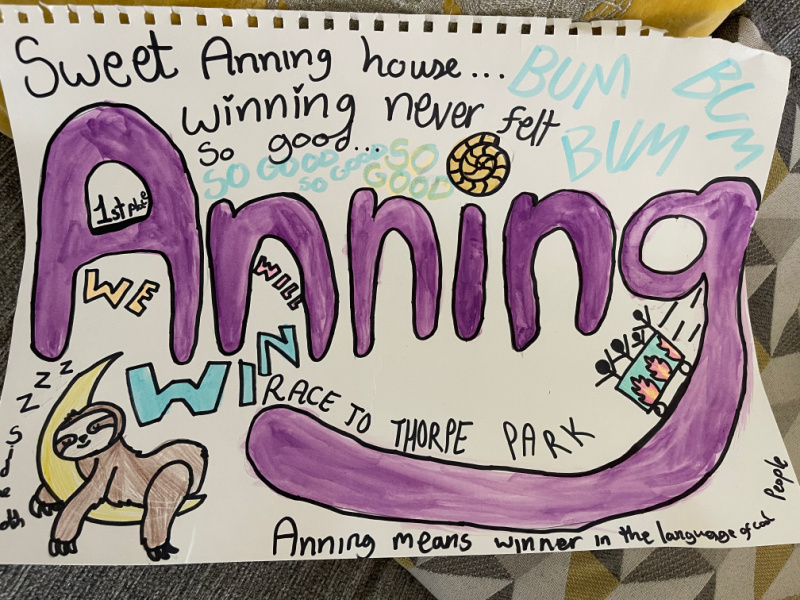 Sweet Anning house...
BUM BUM BUM
winning never felt
so good...
SO GOOD SO GOOD SO GOOD
Anning
1st place
WE
WILL
WIN
RACE TO THORPE PARK
z z z
Anning means winner in the language of cool people